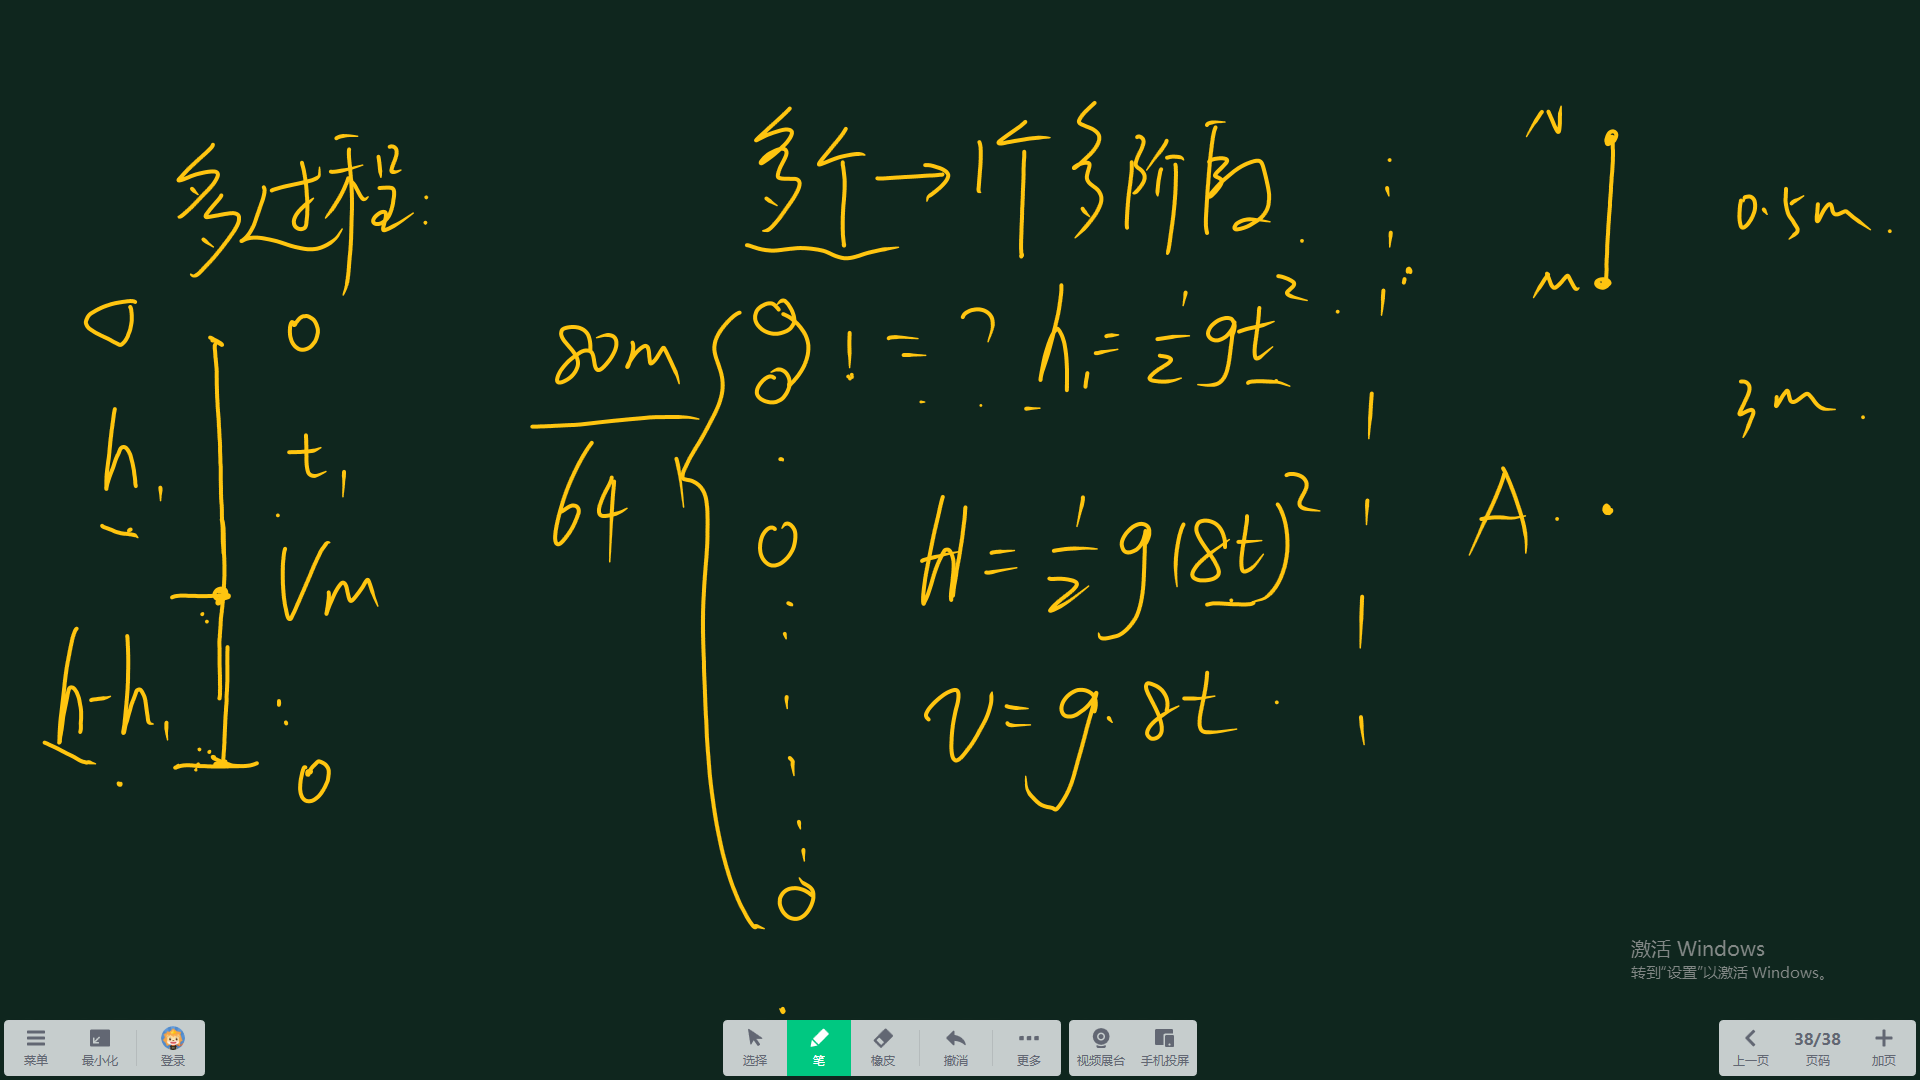 多过程:
0
h₁
t₁
Vm
h-h₁
0
多个→1个多阶段.
80m
64
! = ? h₁=½gt².
H=½g(8t)²
v=g·8t
N
M
0.5m.
3m.
A.
激活 Windows
转到"设置"以激活 Windows。
菜单
最小化
登录
选择
笔
橡皮
撤消
更多
视频展台
手机投屏
上一页
38/38
页码
加页